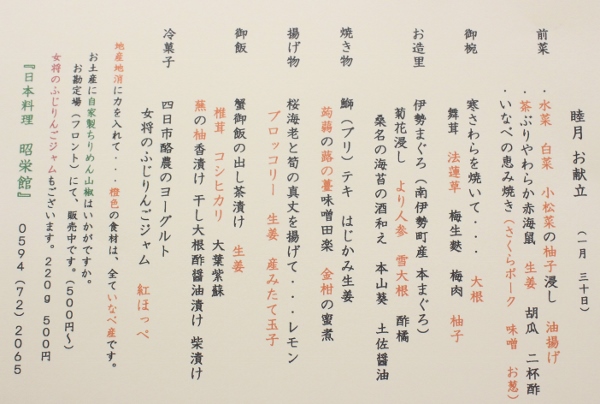 睦月 お献立 (一月 三十日)
前菜 ・水菜 白菜 小松菜の柚子浸し 油揚げ
・茶ぶりやわらか赤海鼠 生姜 胡瓜 二杯酢
・いなべの恵み焼き(さくらポーク 味噌 お葱)
御椀 寒さわらを焼いて・・ 大根
舞茸 法蓮草 梅生麩 梅肉 柚子
お造里 伊勢まぐろ(南伊勢町産 本まぐろ)
菊花浸し より人参 雪大根 酢橘
桑名の海苔の酒和え 本山葵 土佐醤油
焼き物 鰤(ブリ)テキ はじかみ生姜
蒟蒻の蕗の薹味噌田楽 金柑の蜜煮
揚げ物 桜海老と筍の真丈を揚げて ・・・レモン
ブロッコリー 生姜 産みたて玉子
御飯 蟹御飯の出し茶漬け 生姜
椎茸 コシヒカリ 大葉紫蘇
蕪の柚香漬け 干し大根酢醤油漬け 柴漬け
冷菓子 四日市酪農のヨーグルト
女将のふじりんごジャム 紅ほっぺ
地産地消に力を入れて・・・橙色の食材は、全ていなべ産です。
お土産に自家製ちりめん山椒はいかがですか。
お勘定場(フロント)にて、販売中です。(500円~)
女将のふじりんごジャムもございます。220g 500円
『日本料理 昭栄館』 0594(72)2065